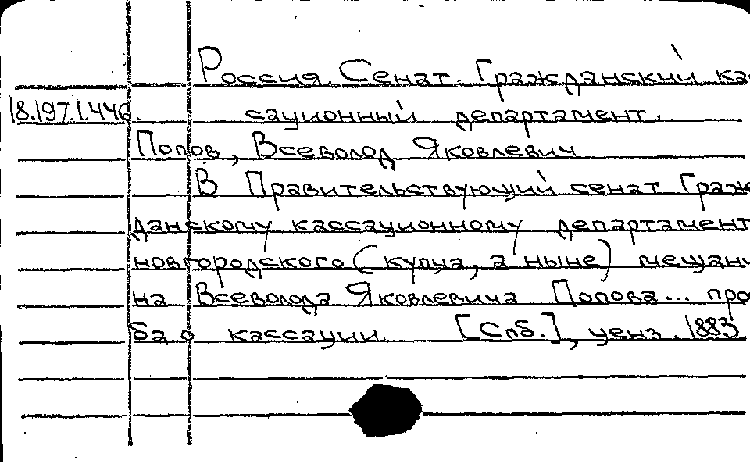 Россия. Сенат. Гражданский кас
18.197.1.446. сационный департамент.
Попов, Всеволод Яковлевич
В Правительствующий сенат Граж
данскому кассационному департамент
новгородского (купца, а ныне) мещани
на Всеволода Яковлевича Попова... про
ба о кассации. [Спб.], ценз. 1883